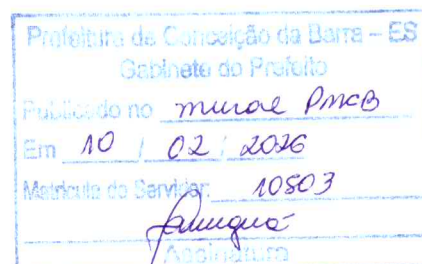 Prefeitura de Conceição da Barra – ES
Gabinete do Prefeito
Publicado no mural PMCB
Em 10 / 02 / 2026
Matrícula do Servidor: 10503
Assinatura